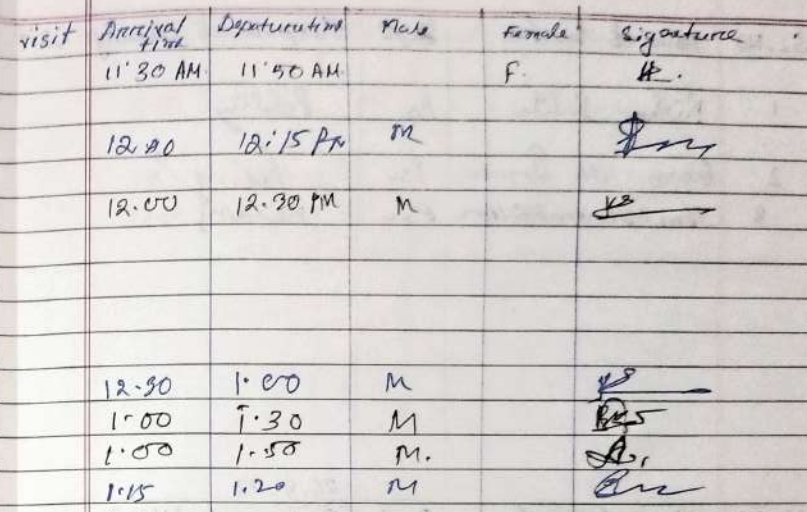 visit Arrival time Depaturetime Male Female Signature
11:30 AM 11:50 AM F.
12.00 12:15 PM M
12.00 12.30 PM M
12.30 1.00 M
1.00 1.30 M
1.00 1.50 M.
1.15 1.20 M